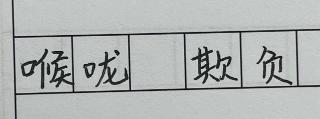 喉咙 欺负